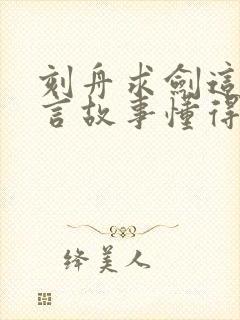 刻舟求劍這
言故事懂得
绛美人